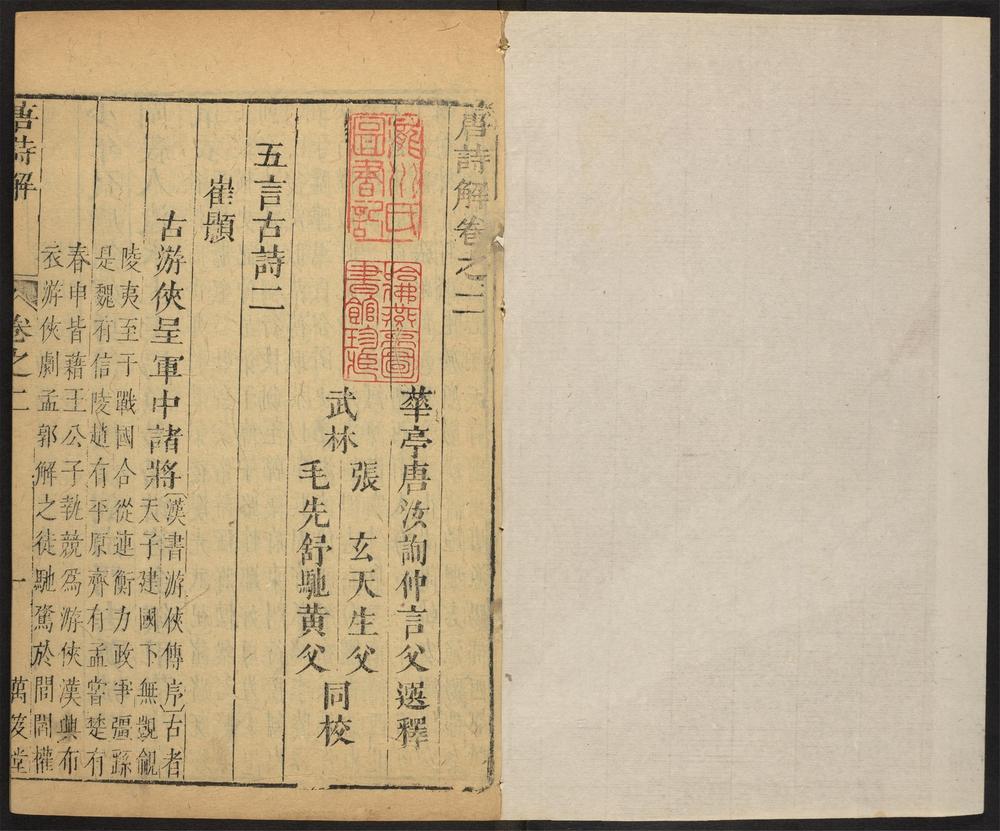 唐詩解卷之二
瀧川氏
圖書記
哈佛燕京圖
書館珍藏
華亭唐汝詢仲言父選釋
武林
張　玄天生父
毛先舒馳黃父
同校
五言古詩二
崔顥
古游俠呈軍中諸將
〔漢書游俠傳序〕古者
天子建國下無覬覦
陵夷至于戰國合從連衡力政爭彊繇
是魏有信陵趙有平原齊有孟嘗楚有
春申皆藉王公子埶競為游俠漢興布
衣游俠劇孟郭解之徒馳騖於閭閻權
唐詩解　卷之二　一　萬笈堂